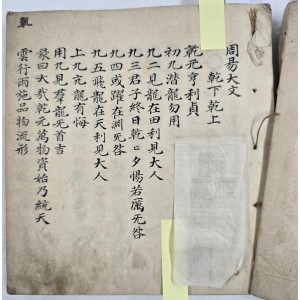 周易大文
乾下乾上
乾元亨利貞
初九潛龍勿用
九二見龍在田利見大人
九三君子終日乾〻夕惕若厲无咎
九四或躍在淵无咎
九五飛龍在天利見大人
上九亢龍有悔
用九見羣龍无首吉
彖曰大哉乾元萬物資始乃統天
雲行雨施品物流形
乾